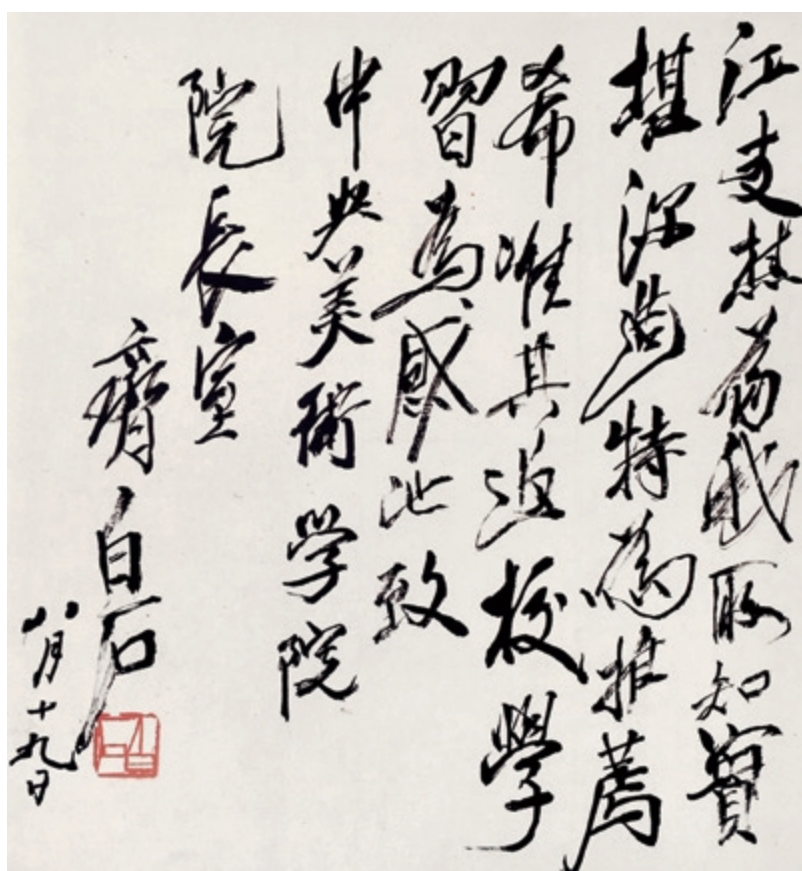 江友樵為我所知實
堪深造特為推薦
希准其返校學
習為感此致
中央美術学院
院長室
齊白石
八月十九日